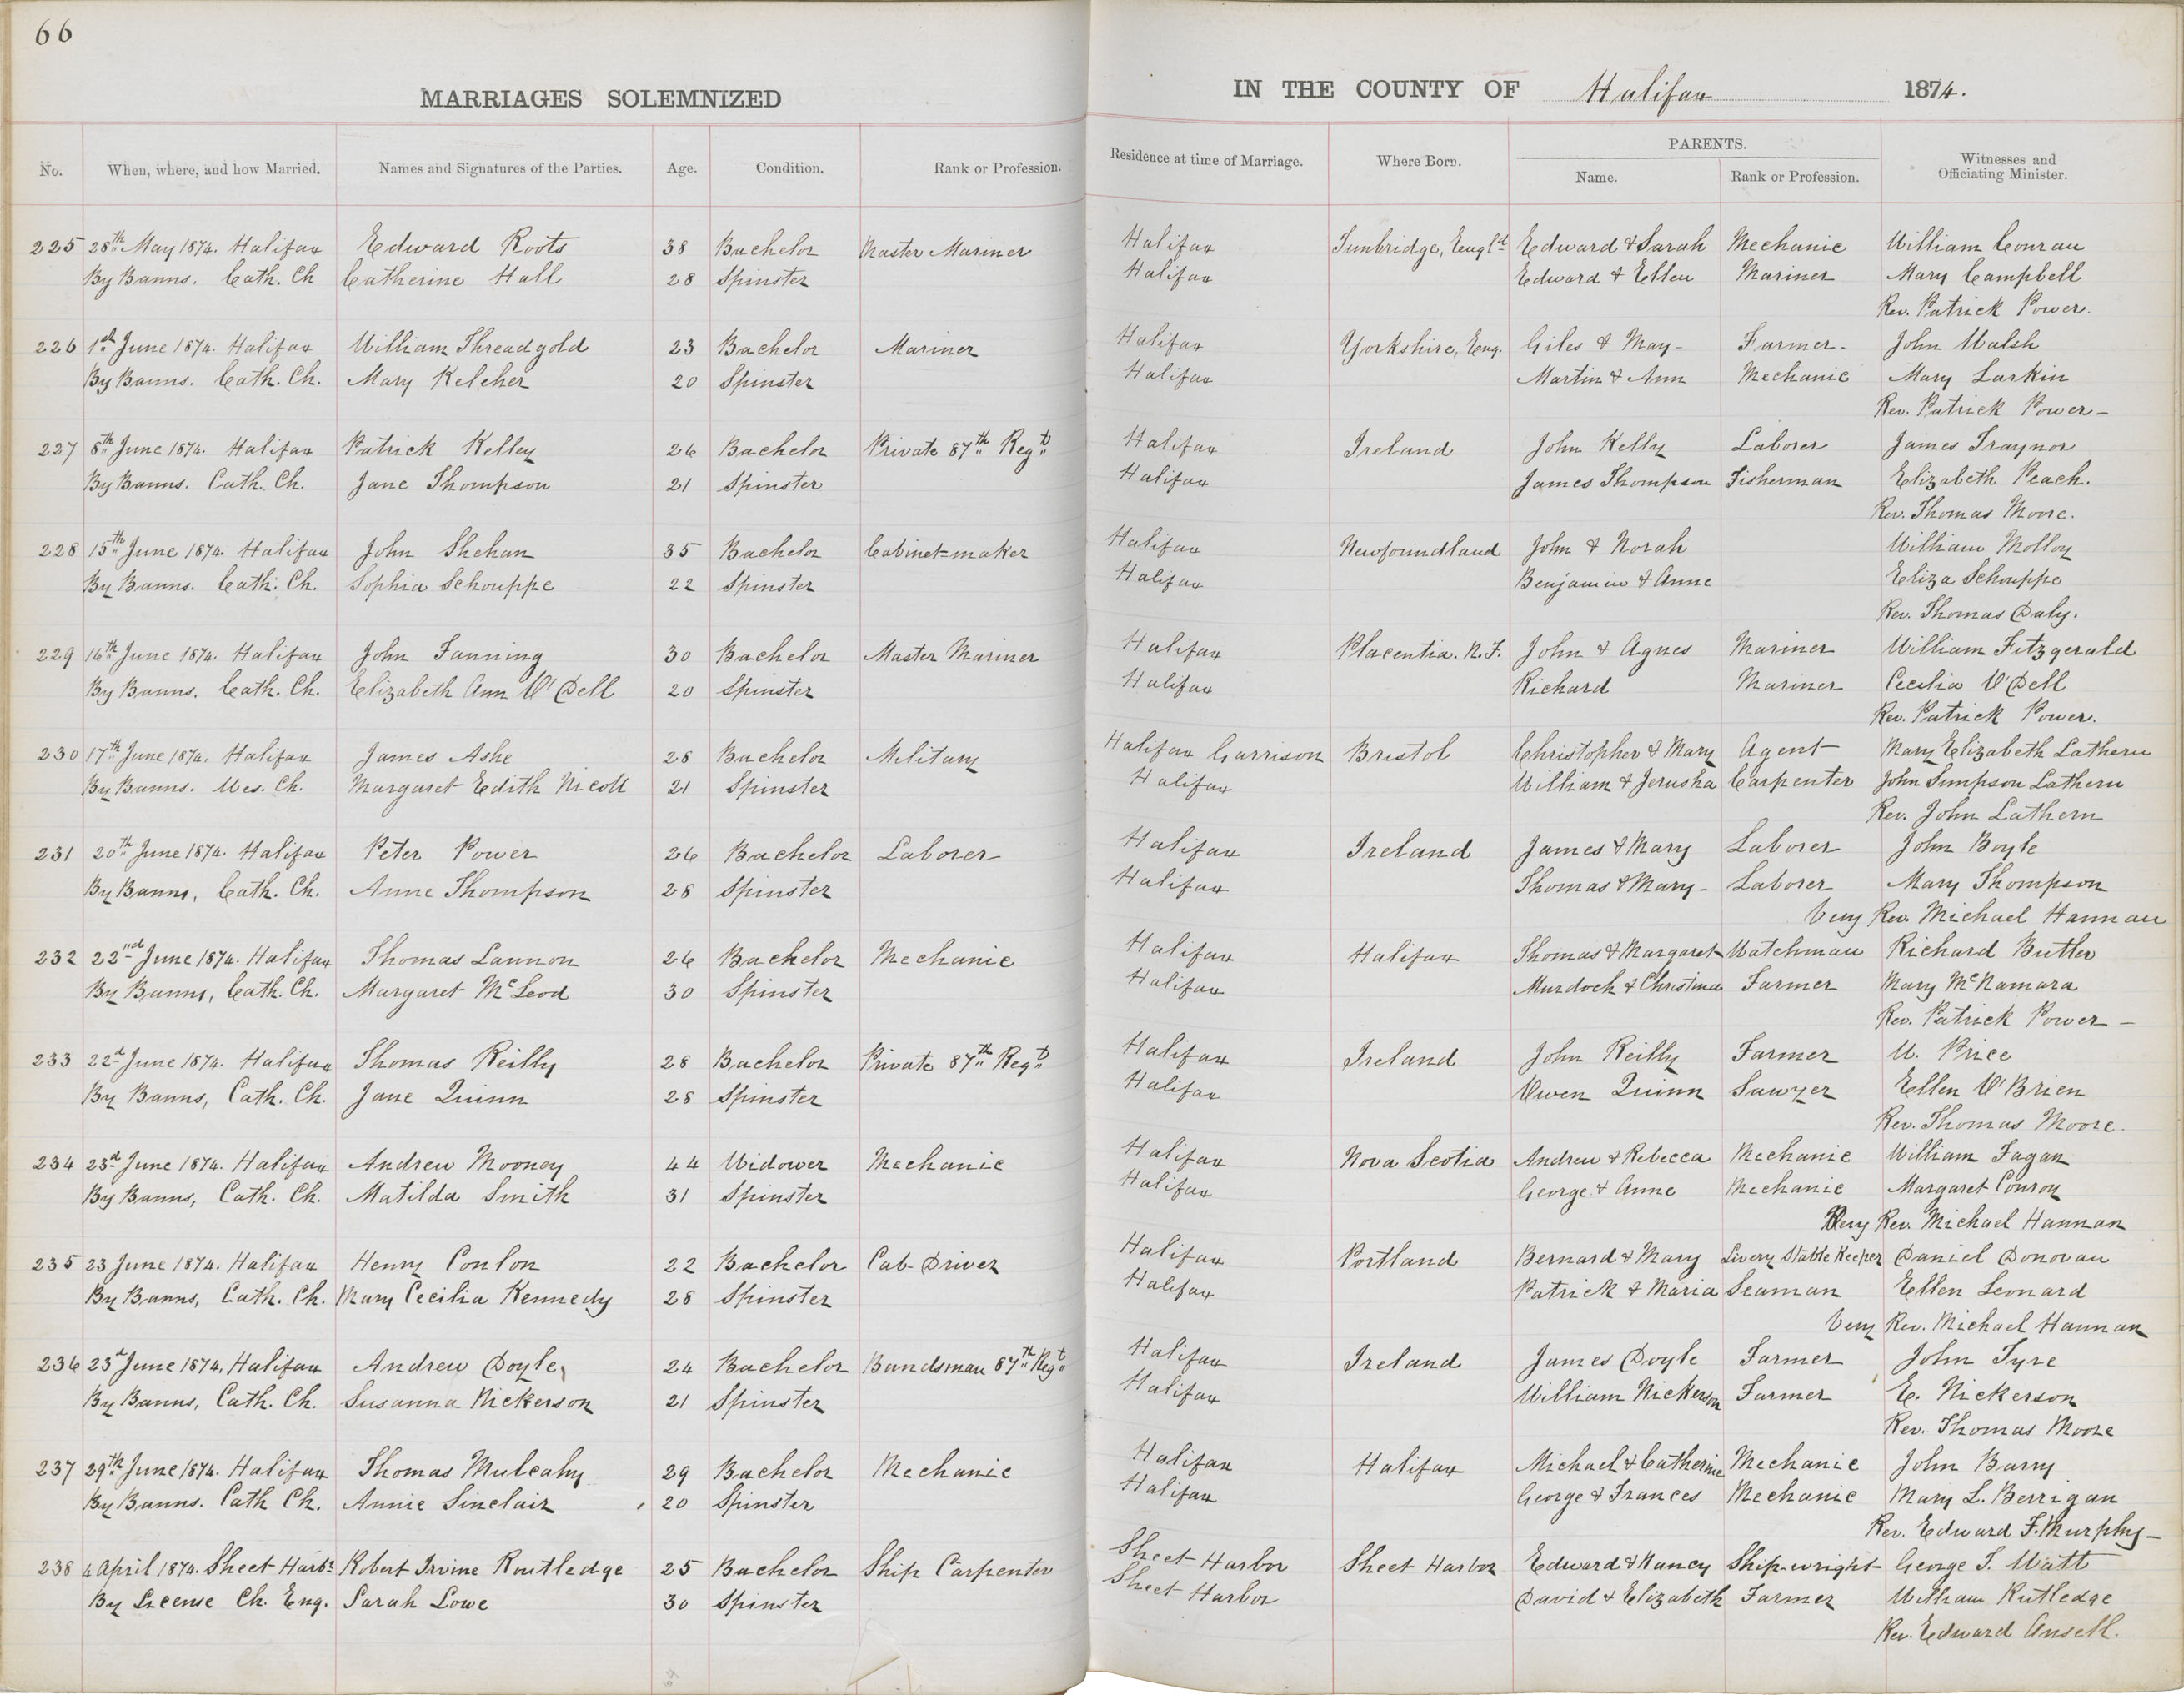 66
MARRIAGES SOLEMNIZED IN THE COUNTY OF Halifax 1874.
No. When, where, and how Married. Names and Signatures of the Parties. Age. Condition. Rank or Profession. Residence at time of Marriage. Where Born. PARENTS. Name. Rank or Profession. Witnesses and Officiating Minister.
225 28th May 1874. Halifax Edward Roots 38 Bachelor Master Mariner Halifax Tunbridge, Engld Edward & Sarah Mechanic William Conrau
By Banns. Cath. Ch Catherine Hall 28 Spinster Halifax Edward & Ellen Mariner Mary Campbell
Rev. Patrick Power.
226 1st June 1874. Halifax William Threadgold 23 Bachelor Mariner Halifax Yorkshire, Eng. Giles & May - Farmer - John Walsh
By Banns. Cath. Ch. Mary Kelcher 20 Spinster Halifax Martin & Ann Mechanic Mary Larkin
Rev. Patrick Power -
227 8th June 1874. Halifax Patrick Kelley 26 Bachelor Private 87th Regt Halifax Ireland John Kelly Laborer James Traynor
By Banns. Cath. Ch. Jane Thompson 21 Spinster Halifax James Thompson Fisherman Elizabeth Peach.
Rev. Thomas Moore.
228 15th June 1874. Halifax John Shehan 35 Bachelor Cabinet-maker Halifax Newfoundland John & Norah William Molloy
By Banns. Cath. Ch. Sophia Schouppe 22 Spinster Halifax Benjamin & Anne Eliza Schouppe
Rev. Thomas Daly.
229 16th June 1874. Halifax John Fanning 30 Bachelor Master Mariner Halifax Placentia. N.F. John & Agnes Mariner William Fitzgerald
By Banns. Cath. Ch. Elizabeth Ann O'Dell 20 Spinster Halifax Richard Mariner Cecilia O'Dell
Rev. Patrick Power.
230 17th June 1874. Halifax James Ashe 28 Bachelor Military Halifax Garrison Bristol Christopher & Mary Agent Mary Elizabeth Lathern
By Banns. Wes. Ch. Margaret Edith Nicoll 21 Spinster Halifax William & Jerusha Carpenter John Simpson Lathern
Rev. John Lathern
231 20th June 1874. Halifax Peter Power 26 Bachelor Laborer Halifax Ireland James & Mary Laborer John Boyle
By Banns, Cath. Ch. Anne Thompson 28 Spinster Halifax Thomas & Mary - Laborer Mary Thompson
Very Rev. Michael Hannan
232 22nd June 1874. Halifax Thomas Lannon 26 Bachelor Mechanic Halifax Halifax Thomas & Margaret Watchman Richard Butler
By Banns, Cath. Ch. Margaret McLeod 30 Spinster Halifax Murdoch & Christina Farmer Mary McNamara
Rev. Patrick Power -
233 22d June 1874. Halifax Thomas Reilly 28 Bachelor Private 87th Regt Halifax Ireland John Reilly Farmer W. Price
By Banns, Cath. Ch. Jane Quinn 28 Spinster Halifax Owen Quinn Sawyer Ellen O'Brien
Rev. Thomas Moore.
234 23d June 1874. Halifax Andrew Mooney 44 Widower Mechanic Halifax Nova Scotia Andrew & Rebecca Mechanic William Fagan
By Banns, Cath. Ch. Matilda Smith 31 Spinster Halifax George & Anne Mechanic Margaret Conroy
Very Rev. Michael Hannan
235 23 June 1874. Halifax Henry Conlon 22 Bachelor Cab Driver Halifax Portland Bernard & Mary Livery Stable Keeper Daniel Donovan
By Banns, Cath. Ch. Mary Cecilia Kennedy 28 Spinster Halifax Patrick & Maria Seaman Ellen Leonard
Very Rev. Michael Hannan
236 23d June 1874, Halifax Andrew Doyle, 24 Bachelor Bandsman 87th Regt Halifax Ireland James Doyle Farmer John Tyre
By Banns, Cath. Ch. Susanna Nickerson 21 Spinster Halifax William Nickerson Farmer E. Nickerson
Rev. Thomas Moore
237 29th June 1874. Halifax Thomas Mulcahy 29 Bachelor Mechanic Halifax Halifax Michael & Catherine Mechanic John Barry
By Banns. Cath Ch. Annie Sinclair 20 Spinster Halifax George & Frances Mechanic Mary L. Berrigan
Rev. Edward F. Murphy -
238 4 April 1874. Sheet Harbr Robert Irvine Routledge 25 Bachelor Ship Carpenter Sheet Harbor Sheet Harbor Edward & Nancy Ship-wright George T. Watt
By License Ch. Eng. Sarah Lowe 30 Spinster Sheet Harbor David & Elizabeth Farmer William Rutledge
Rev. Edward Ansell.